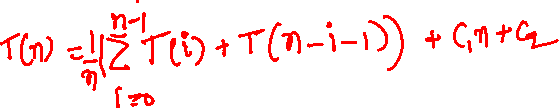 T(n) = 1/n (∑_{i=0}^{n-1} T(i) + T(n-i-1)) + C₁n + C₂